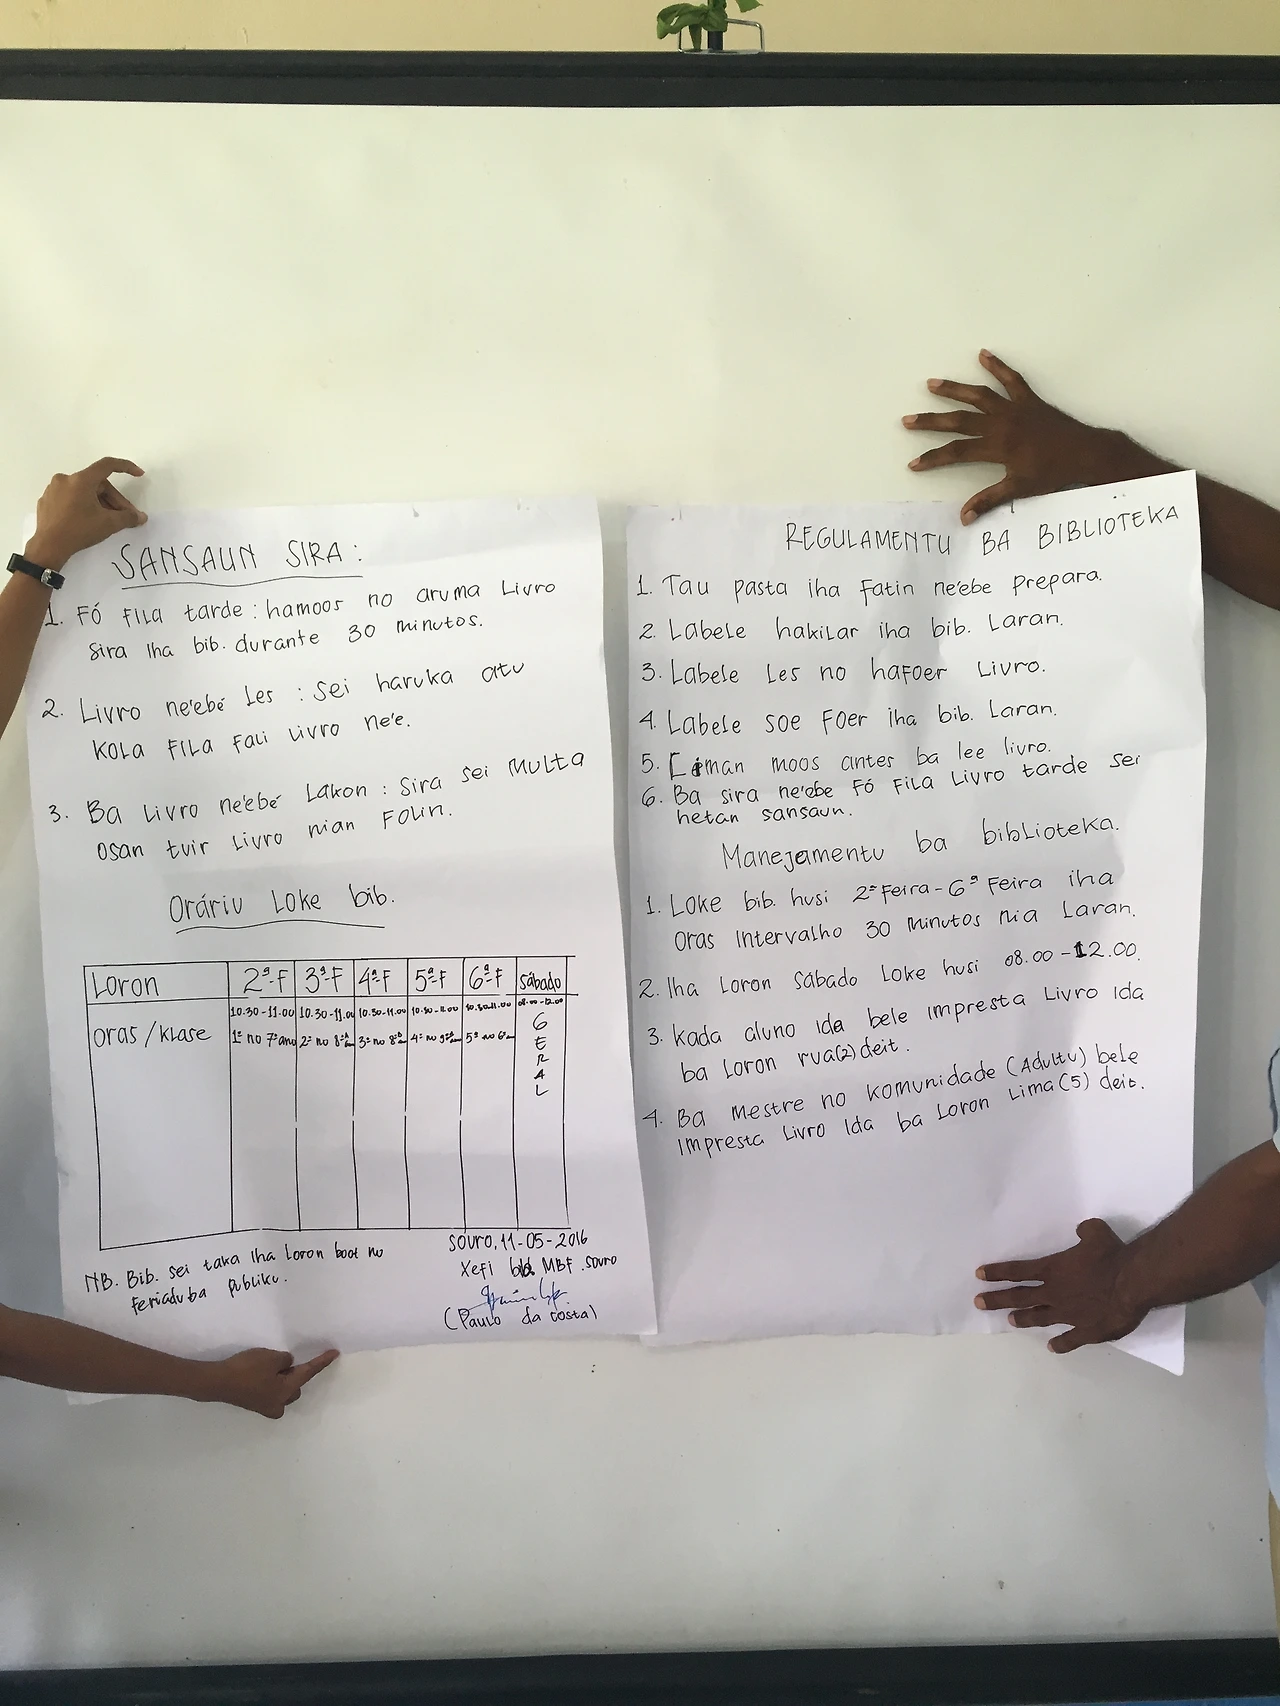 SANSAUN SIRA:
1. Fó FILA tarde : hamoos no aruma Livro
Sira Iha bib. durante 30 Minutos.
2. Livro ne'ebé Les : sei haruka atu
KOLA FILA FALI Livro ne'e.
3. Ba Livro ne'ebé Lakon : Sira sei Multa
Osan tuir Livro nian Folin.
Oráriu Loke bib.
Loron 2ª-F 3ª-F 4ª-F 5ª-F 6ª-F Sábado
10.30-11.00 10.30-11.00 10.30-11.00 10.30-11.00 10.30-11.00 08.00-12.00
Oras/Klase 1º no 7º ano 2º no 8º 3º no 8º 4º no 9º 5º no 6º GERAL
NB. Bib. sei taka Iha Loron boot no
Feriadu ba Publiku.
Souro, 11-05-2016
Xefi bib. MBF. Souro
(Paulo da Costa)
REGULAMENTU BA BIBLIOTEKA
1. Tau pasta iha Fatin ne'ebe Prepara.
2. Labele hakilar iha bib. Laran.
3. Labele Les no haFoer Livro.
4. Labele soe Foer iha bib. Laran.
5. Liman moos antes ba lee livro.
6. Ba sira ne'ebe Fó Fila Livro tarde sei
hetan sansaun.
Manejamentu ba biblioteka.
1. Loke bib. husi 2ª Feira-6ª Feira iha
Oras Intervalho 30 Minutos nia Laran.
2. Iha Loron Sábado Loke husi 08.00-12.00.
3. Kada aluno Ida bele impresta Livro Ida
ba Loron rua(2) deit.
4. Ba Mestre no Komunidade (Adultu) bele
Impresta Livro Ida ba Loron Lima(5) deit.